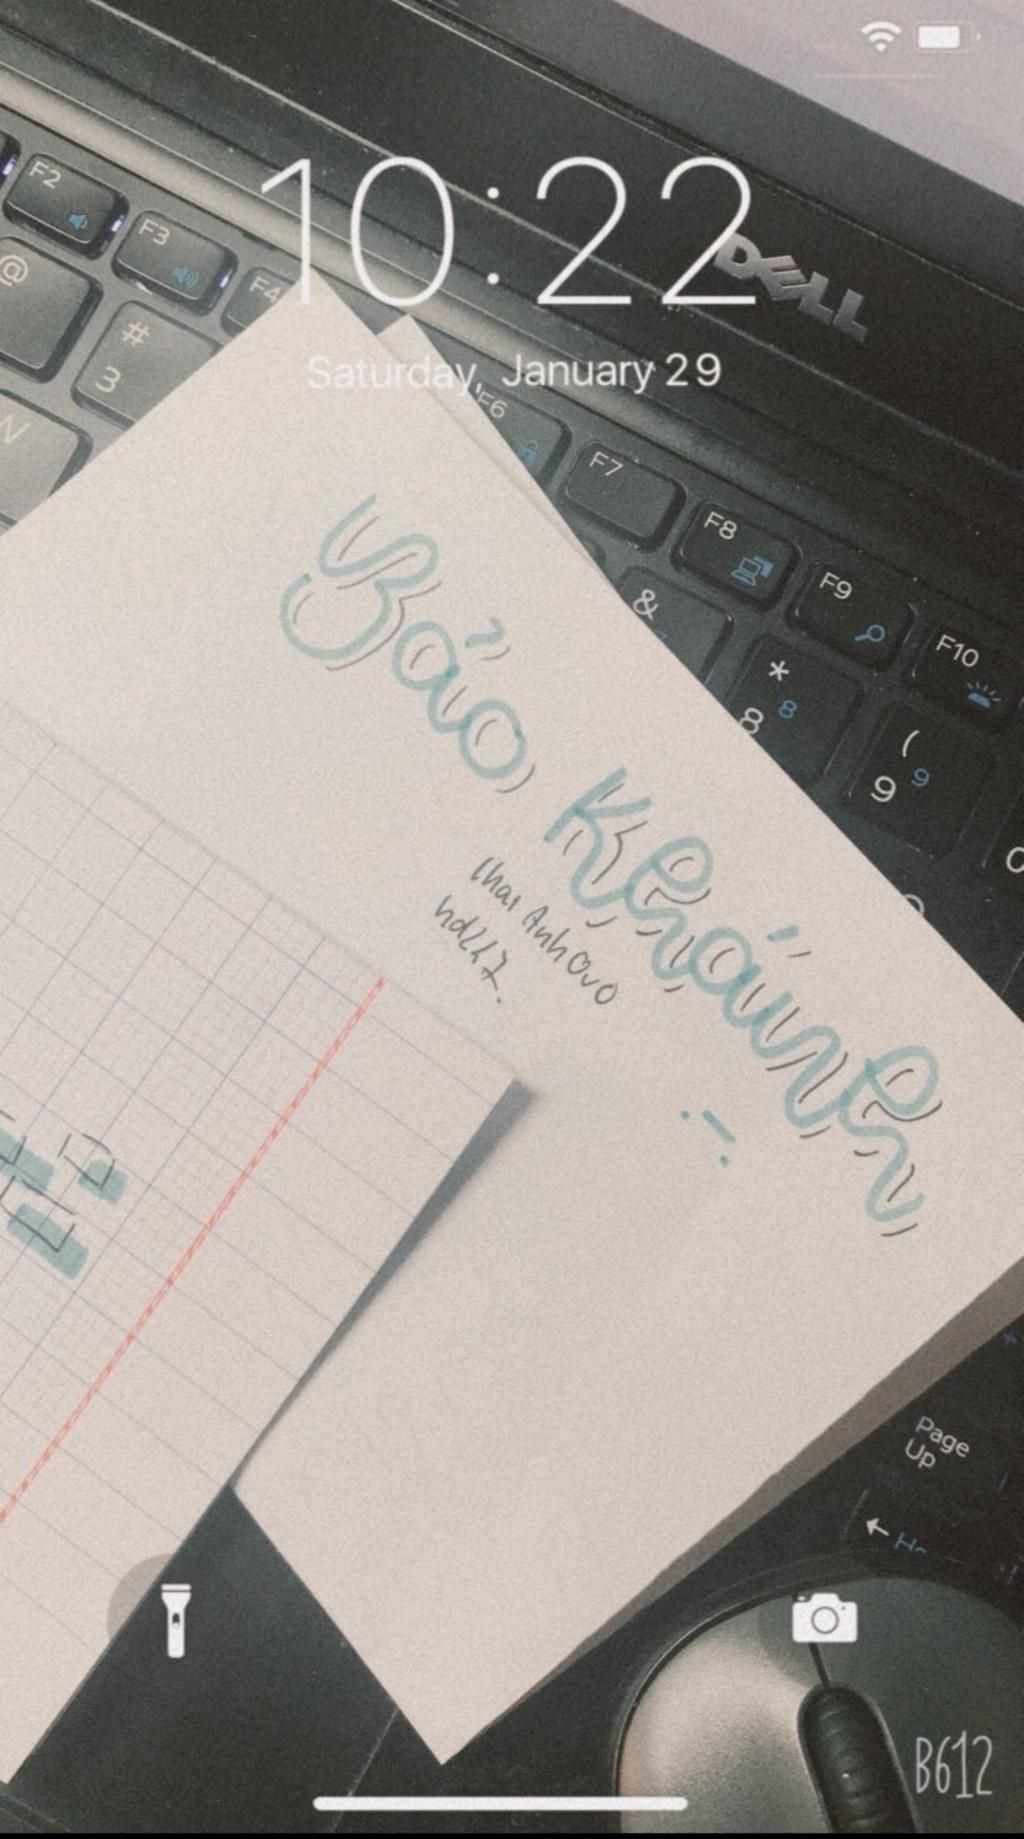 10:22
Saturday, January 29
DELL
F2
F3
F4
@
#
3
W
F6
F7
F8
F9
F10
&
*
8 8
(
9 9
Bảo Khánh
Page
Up
B612